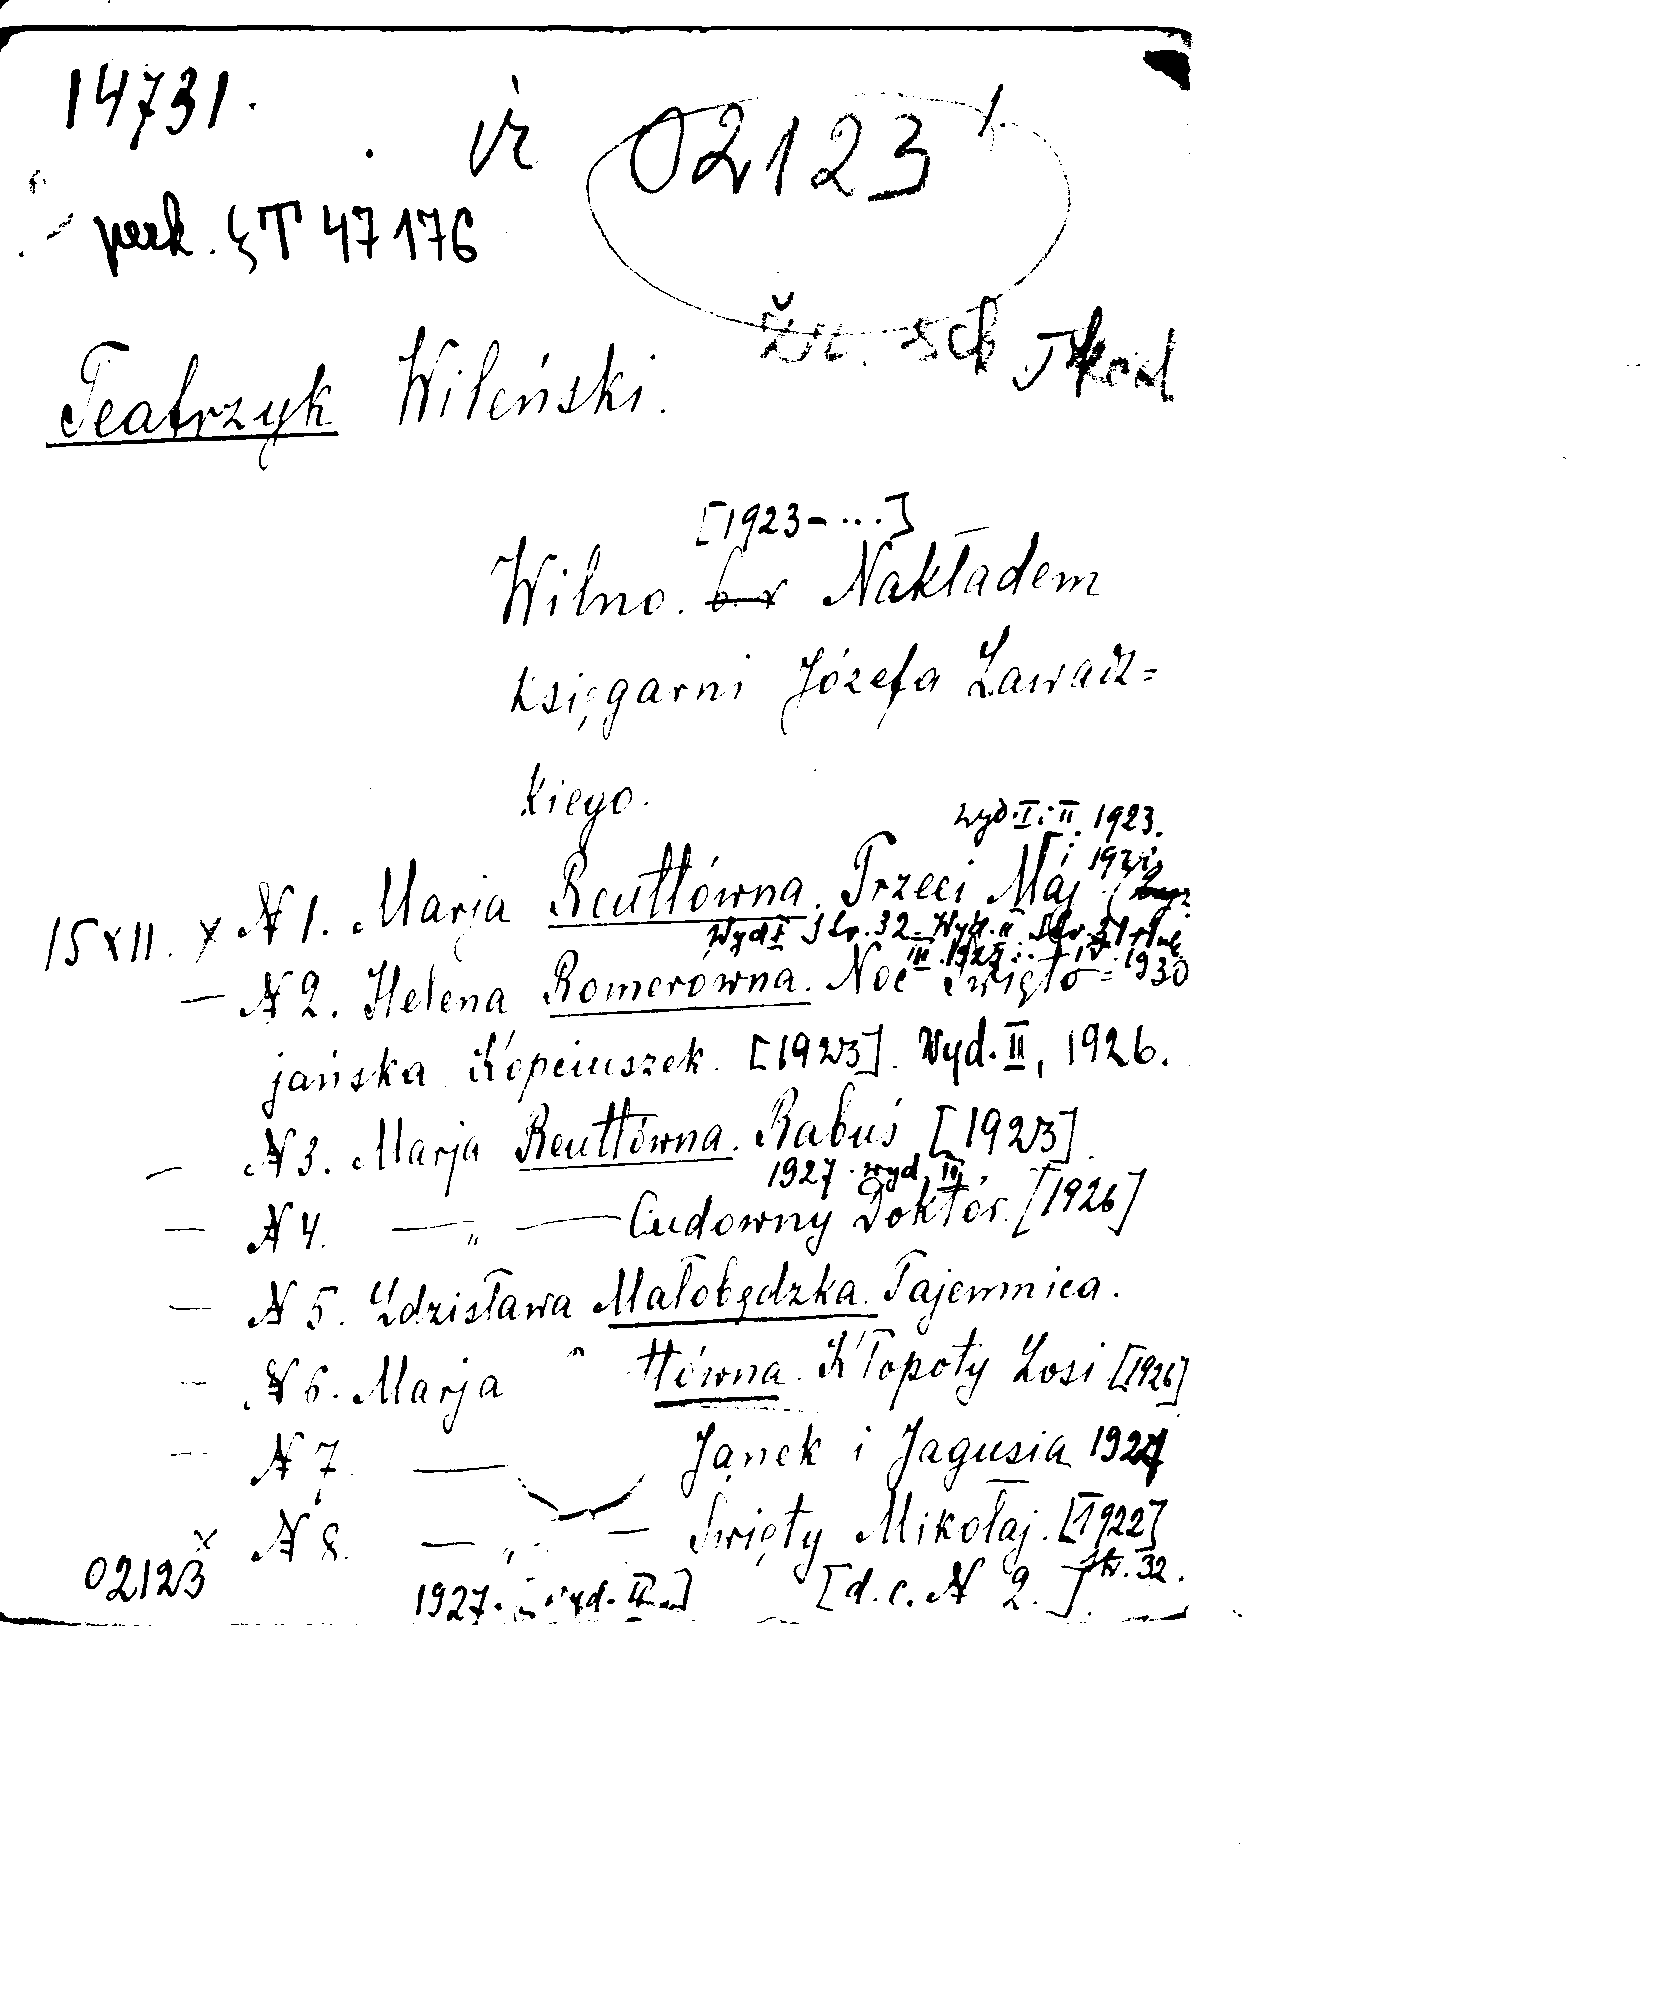 14731.
ir 02123
perk. T 47176
Żr. sch
Teatrzyk Wileński.
[1923-...]
Wilno. b. r Nakładem
Księgarni Józefa Zawadz=
kiego.
wyd. I i II 1923.
15 XII. x N 1. Marja Reuttówna. Trzeci Maj
Wyd I Str. 32. Wyd. II Str. 31
III. 1925 IV. 1930
— N 2. Helena Romerówna. Noc Święto=
jańska Kopciuszek. [1923]. Wyd. II, 1926.
— N 3. Marja Reuttówna. Rabuś [1923].
1927. wyd. III
— N 4. — „ — Cudowny Doktór. [1926]
— N 5. Zdzisława Małobędzka. Tajemnica.
— N 6. Marja ttówna. Kłopoty Zosi [1926]
— N 7. — Janek i Jagusia 1927
x N 8. — „ — Święty Mikołaj. [1922]
str. 32.
02123 1927. wyd. II [d. c. N 2.]